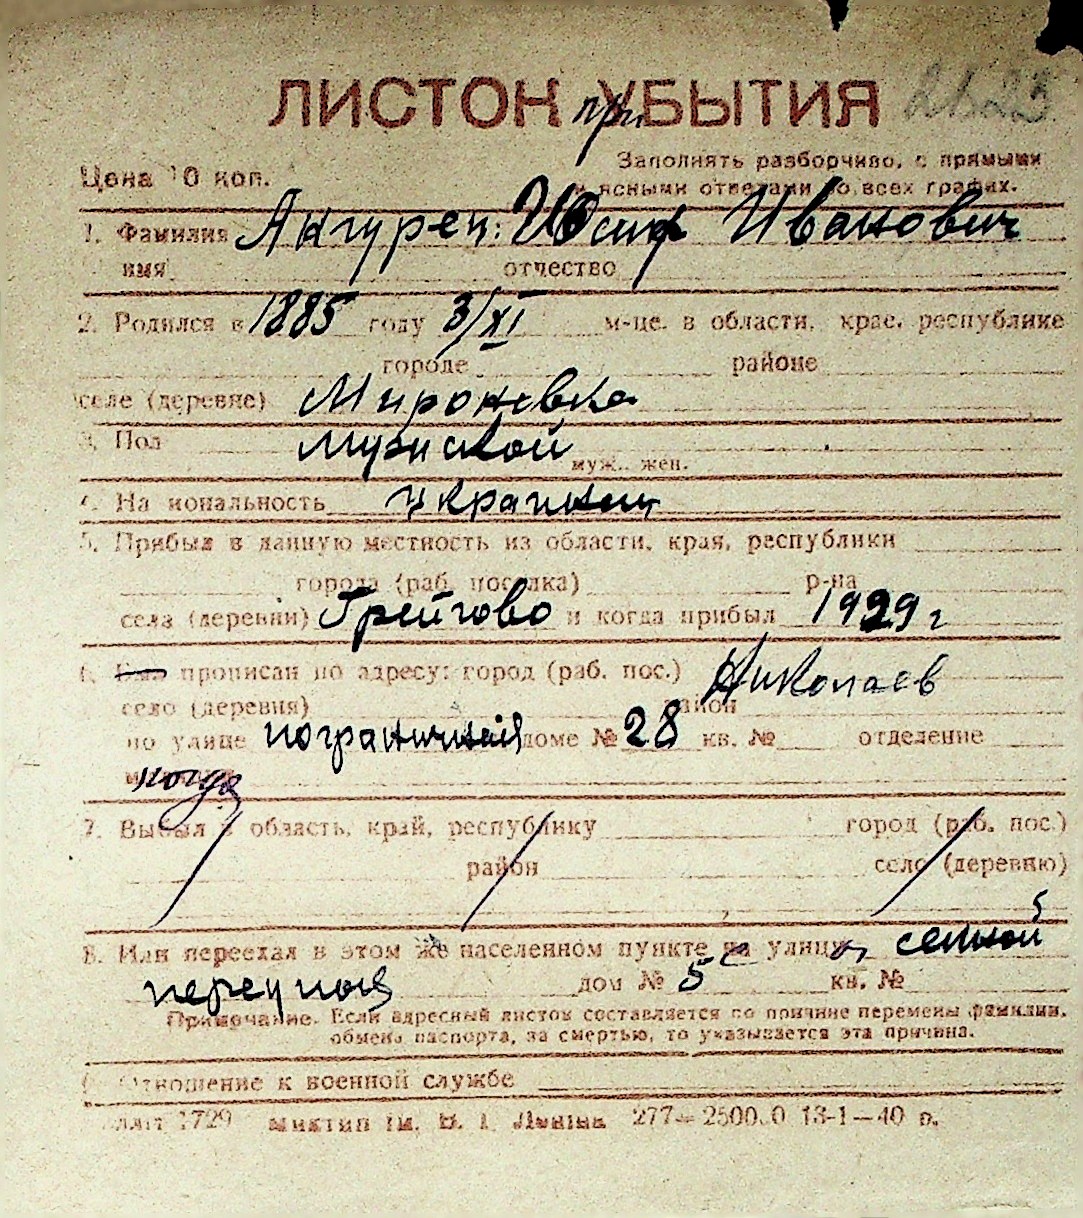 ЛИСТОК при УБЫТИЯ
Цена 10 коп.
Заполнять разборчиво, с прямыми
и ясными ответами во всех графах.
1. Фамилия Ангурец: Иосиф Иванович
имя отчество
2. Родился в 1885 году 3/XI м-це. в области, крае, республике
городе районе
селе (деревне) Мироновка
3. Пол мужской
муж. жен.
4. Национальность украинец
5. Прибыл в данную местность из области, края, республики
города (раб. поселка) р-на
села (деревни) Грейгово и когда прибыл 1929 г
6. Был прописан по адресу: город (раб. пос.) Николаев
село (деревня) район
по улице пограничная доме № 28 кв. № отделение
когда
7. Выбыл в область, край, республику город (раб. пос.)
район село (деревню)
8. Или переехал в этом же населенном пункте на улицу сенной 5
дом № 5 кв. №
Примечание. Если адресный листок составляется по причине перемены фамилии,
обмена паспорта, за смертью, то указывается эта причина.
Отношение к военной службе
1729 им. В. И. Ленина 277— 13-1—40 п.